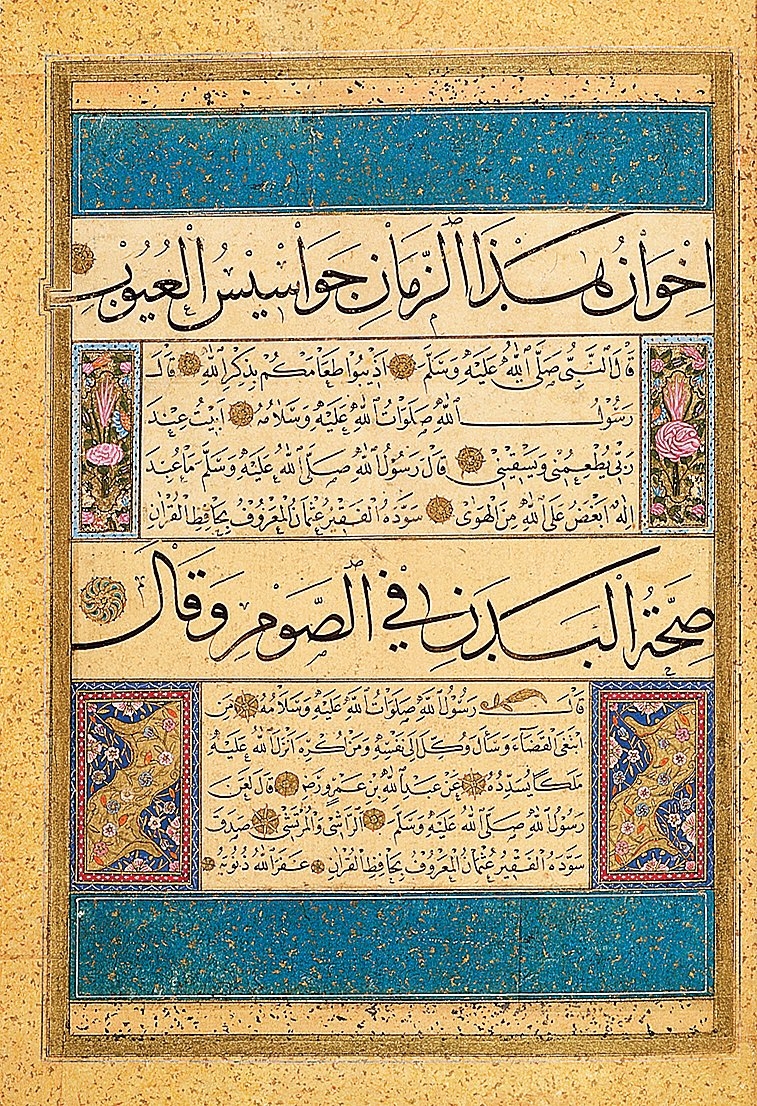 اِخْوَانُ هٰذَا الزَّمَانِ جَوَاسِيسُ الْعُيُوبِ
قَالَ النَّبِيُّ صَلَّى اللّٰهُ عَلَيْهِ وَسَلَّمَ اَذِيبُوا طَعَامَكُمْ بِذِكْرِ اللّٰهِ قَالَ
رَسُولُ اللّٰهِ صَلَوَاتُ اللّٰهِ عَلَيْهِ وَسَلَامُهُ اَبِيتُ عِنْدَ
رَبِّي يُطْعِمُنِي وَيَسْقِينِي قَالَ رَسُولُ اللّٰهِ صَلَّى اللّٰهُ عَلَيْهِ وَسَلَّمَ مَا عُبِدَ
اِلٰهٌ اَبْغَضُ عَلَى اللّٰهِ مِنَ الْهَوٰى سَوَّدَهُ الْفَقِيرُ عُثْمَانُ الْمَعْرُوفُ بِحَافِظِ الْقُرْاٰنِ
صِحَّةُ الْبَدَنِ فِي الصَّوْمِ وَقَالَ
قَالَ رَسُولُ اللّٰهِ صَلَوَاتُ اللّٰهِ عَلَيْهِ وَسَلَامُهُ مَنِ
ابْتَغَى الْقَضَاءَ وَسَأَلَ وُكِّلَ اِلٰى نَفْسِهِ وَمَنْ اُكْرِهَ اَنْزَلَ اللّٰهُ عَلَيْهِ
مَلَكًا يُسَدِّدُهُ عَنْ عَبْدِ اللّٰهِ بْنِ عَمْرٍو رَضِ قَالَ لَعَنَ
رَسُولُ اللّٰهِ صَلَّى اللّٰهُ عَلَيْهِ وَسَلَّمَ الرَّاشِيَ وَالْمُرْتَشِيَ صَدَقَ
سَوَّدَهُ الْفَقِيرُ عُثْمَانُ الْمَعْرُوفُ بِحَافِظِ الْقُرْاٰنِ غَفَرَ اللّٰهُ ذُنُوبَهُ